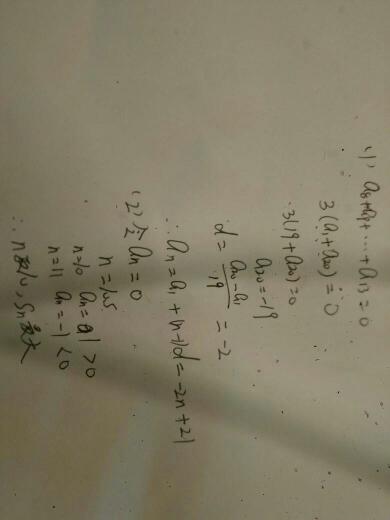 (1) a8+a9+…+a13=0
3(a1+a20)=0
∴3(19+a20)=0
a20=-19
d=(a20-a1)/19=-2
∴an=a1+(n-1)d=-2n+21
(2)令an=0
n=10.5
n=10 an=1>0
n=11 an=-1<0
∴n=10, Sn最大